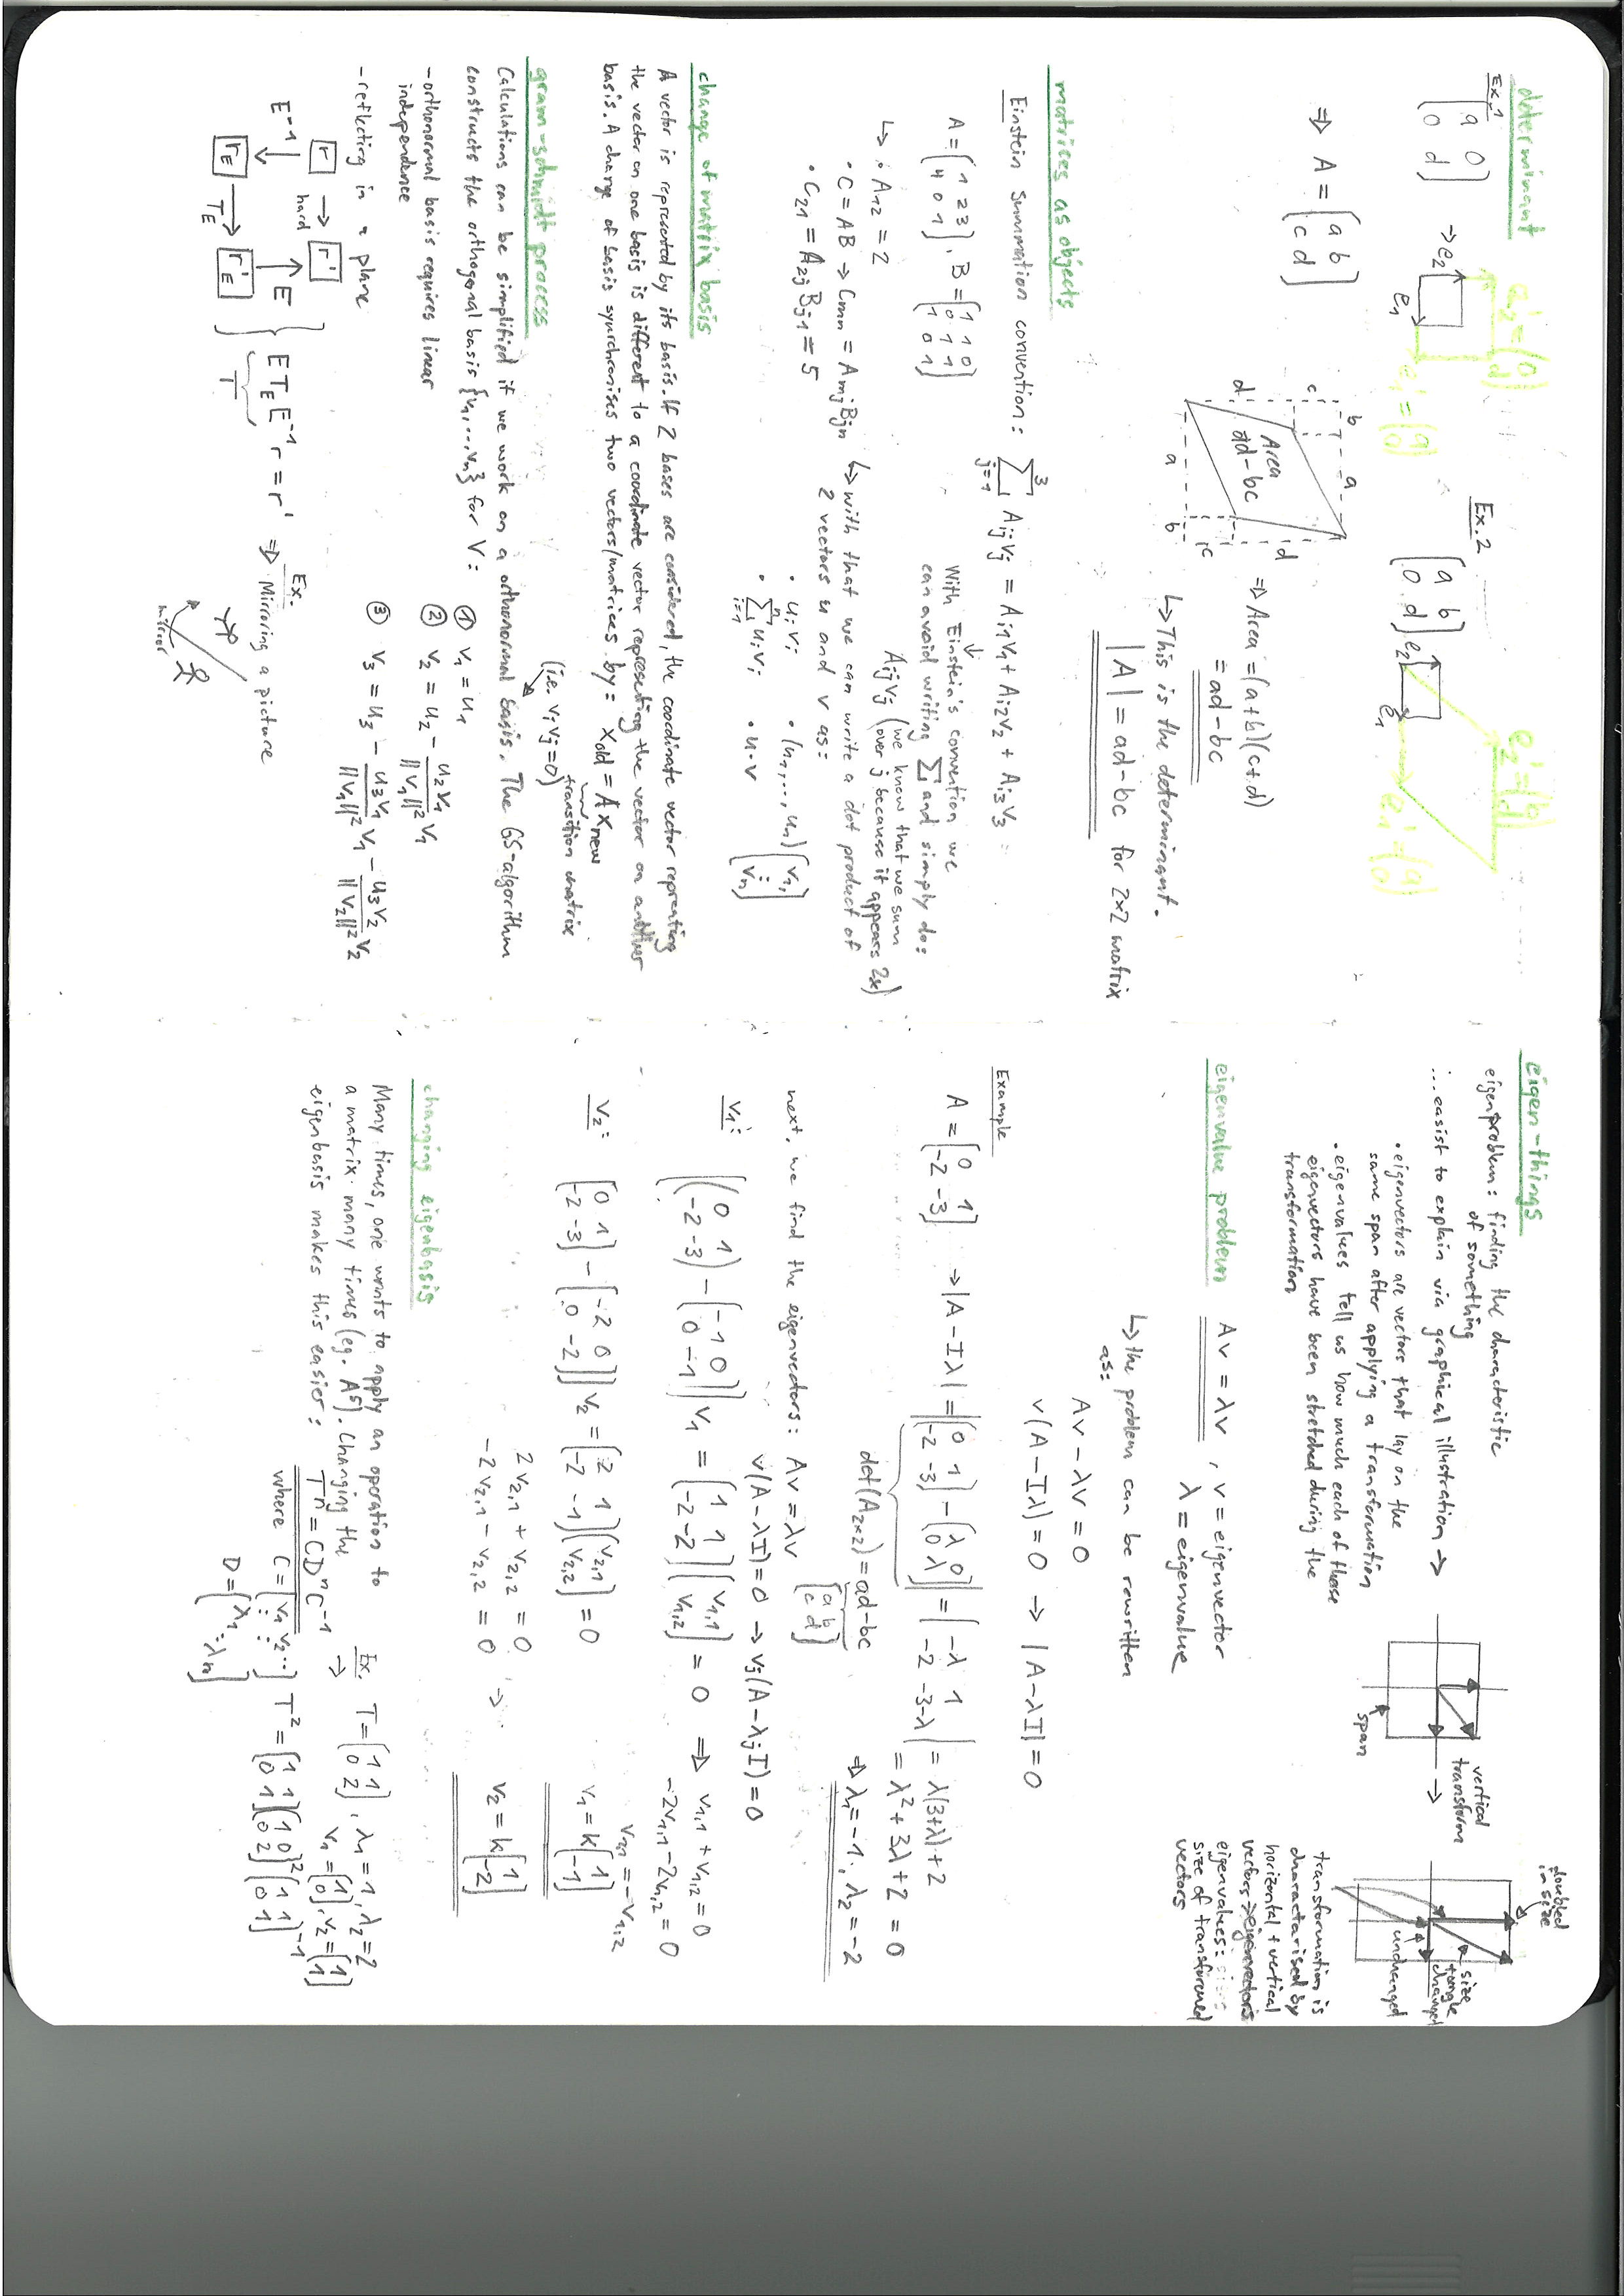 determinant
Ex.1
(a 0
0 d)
→ e2
e1
e2' = (0
d)
e1' = (a
0)
Ex.2
(a b
0 d)
e2
e1
e2' = (b
d)
e1' = (a
0)
⇒ A = (a b
c d)
b a
c
d
Area
ad-bc
d
c
a b
⇒ Area = (a+b)(c+d)
= ad-bc
↳ This is the determinant.
|A| = ad-bc for 2×2 matrix
matrices as objects
Einstein summation convention: 3 Σ j=1 Aij vj = Ai1 v1 + Ai2 v2 + Ai3 v3
A = (1 2 3
4 0 1), B = (1 1 0
0 1 1
1 0 1)
↓
With Einstein's convention we
can avoid writing Σ and simply do:
Aij vj (we know that we sum
over j because it appears 2x)
↳ · A12 = 2
· C = AB → Cmn = Amj Bjn
· C21 = A2j Bj1 = 5
↳ with that we can write a dot product of
2 vectors u and v as:
· ui vi · (u1, ..., un) (v1,
:
vn)
· n Σ i=1 ui vi · u·v
change of matrix basis
A vector is represented by its basis. If 2 bases are considered, the coordinate vector reprenting
the vector on one basis is different to a coordinate vector representing the vector on another
basis. A change of basis synchronises two vectors/matrices by: Xold = A Xnew
transition matrix
gram-schmidt process
(i.e. vi vj = 0)
Calculations can be simplified if we work on a orthonormal basis. The GS-algorithm
constructs the orthogonal basis {v1, ..., vn} for V:
① v1 = u1
② v2 = u2 - u2 v1 / ||v1||² v1
③ v3 = u3 - u3 v1 / ||v1||² v1 - u3 v2 / ||v2||² v2
- orthonormal basis requires linear
independence
- reflecting in a plane
r → r'
hard
E⁻¹ ↓ ↑ E
rE → r'E
TE
} E TE E⁻¹ r = r' ⇒
T
Ex.
Mirroring a picture
mirror
eigen-things
eigenproblem: finding the characteristic
of something
...easist to explain via graphical illustration →
· eigenvectors are vectors that lay on the
same span after applying a transformation
· eigenvalues tell us how much each of these
eigenvectors have been stretched during the
transformation
span
vertical
transform
→
doubled
in size
size
+angle
changed
unchanged
transformation is
charactarised by
horizontal + vertical
vectors → eigenvectors
eigenvalues:
size of transformed
vectors
eigenvalue problem Av = λv , v = eigenvector
λ = eigenvalue
↳ the problem can be rewritten
as:
Av - λv = 0
v(A - Iλ) = 0 → |A - λI| = 0
Example
A = [0 1
-2 -3] → |A - Iλ| = |[0 1
-2 -3] - [λ 0
0 λ]| = |-λ 1
-2 -3-λ| = λ(3+λ) + 2
= λ² + 3λ + 2 = 0
⇒ λ1 = -1, λ2 = -2
det(A2×2) = ad-bc
[a b
c d]
next, we find the eigenvectors: Av = λv
v(A - λI) = 0 → vj(A - λjI) = 0
v1: [(0 1
-2 -3) - [-1 0
0 -1]] v1 = [1 1
-2 -2] [v1,1
v1,2] = 0 ⇒ v1,1 + v1,2 = 0
-2v1,1 - 2v1,2 = 0
= -v1,2
v1 = k[1
-1]
v2: [0 1
-2 -3] - [-2 0
0 -2]] v2 = [2 1
-2 -1] (v2,1
v2,2) = 0
2v2,1 + v2,2 = 0
-2v2,1 - v2,2 = 0 →
v2 = k[1
-2]
changing eigenbasis
Many times, one wants to apply an operation to
a matrix many times (eg. A⁵). Changing the
eigenbasis makes this easier: Tⁿ = CDⁿC⁻¹
where C = [v1 v2 ..
: :]
D = [λ1
⋱ λn]
Ex. → T = [1 1
0 2], λ1 = 1, λ2 = 2
v1 = [1
0], v2 = [1
1]
T² = [1 1
0 1] [1 0
0 2]² [1 1
0 1]⁻¹